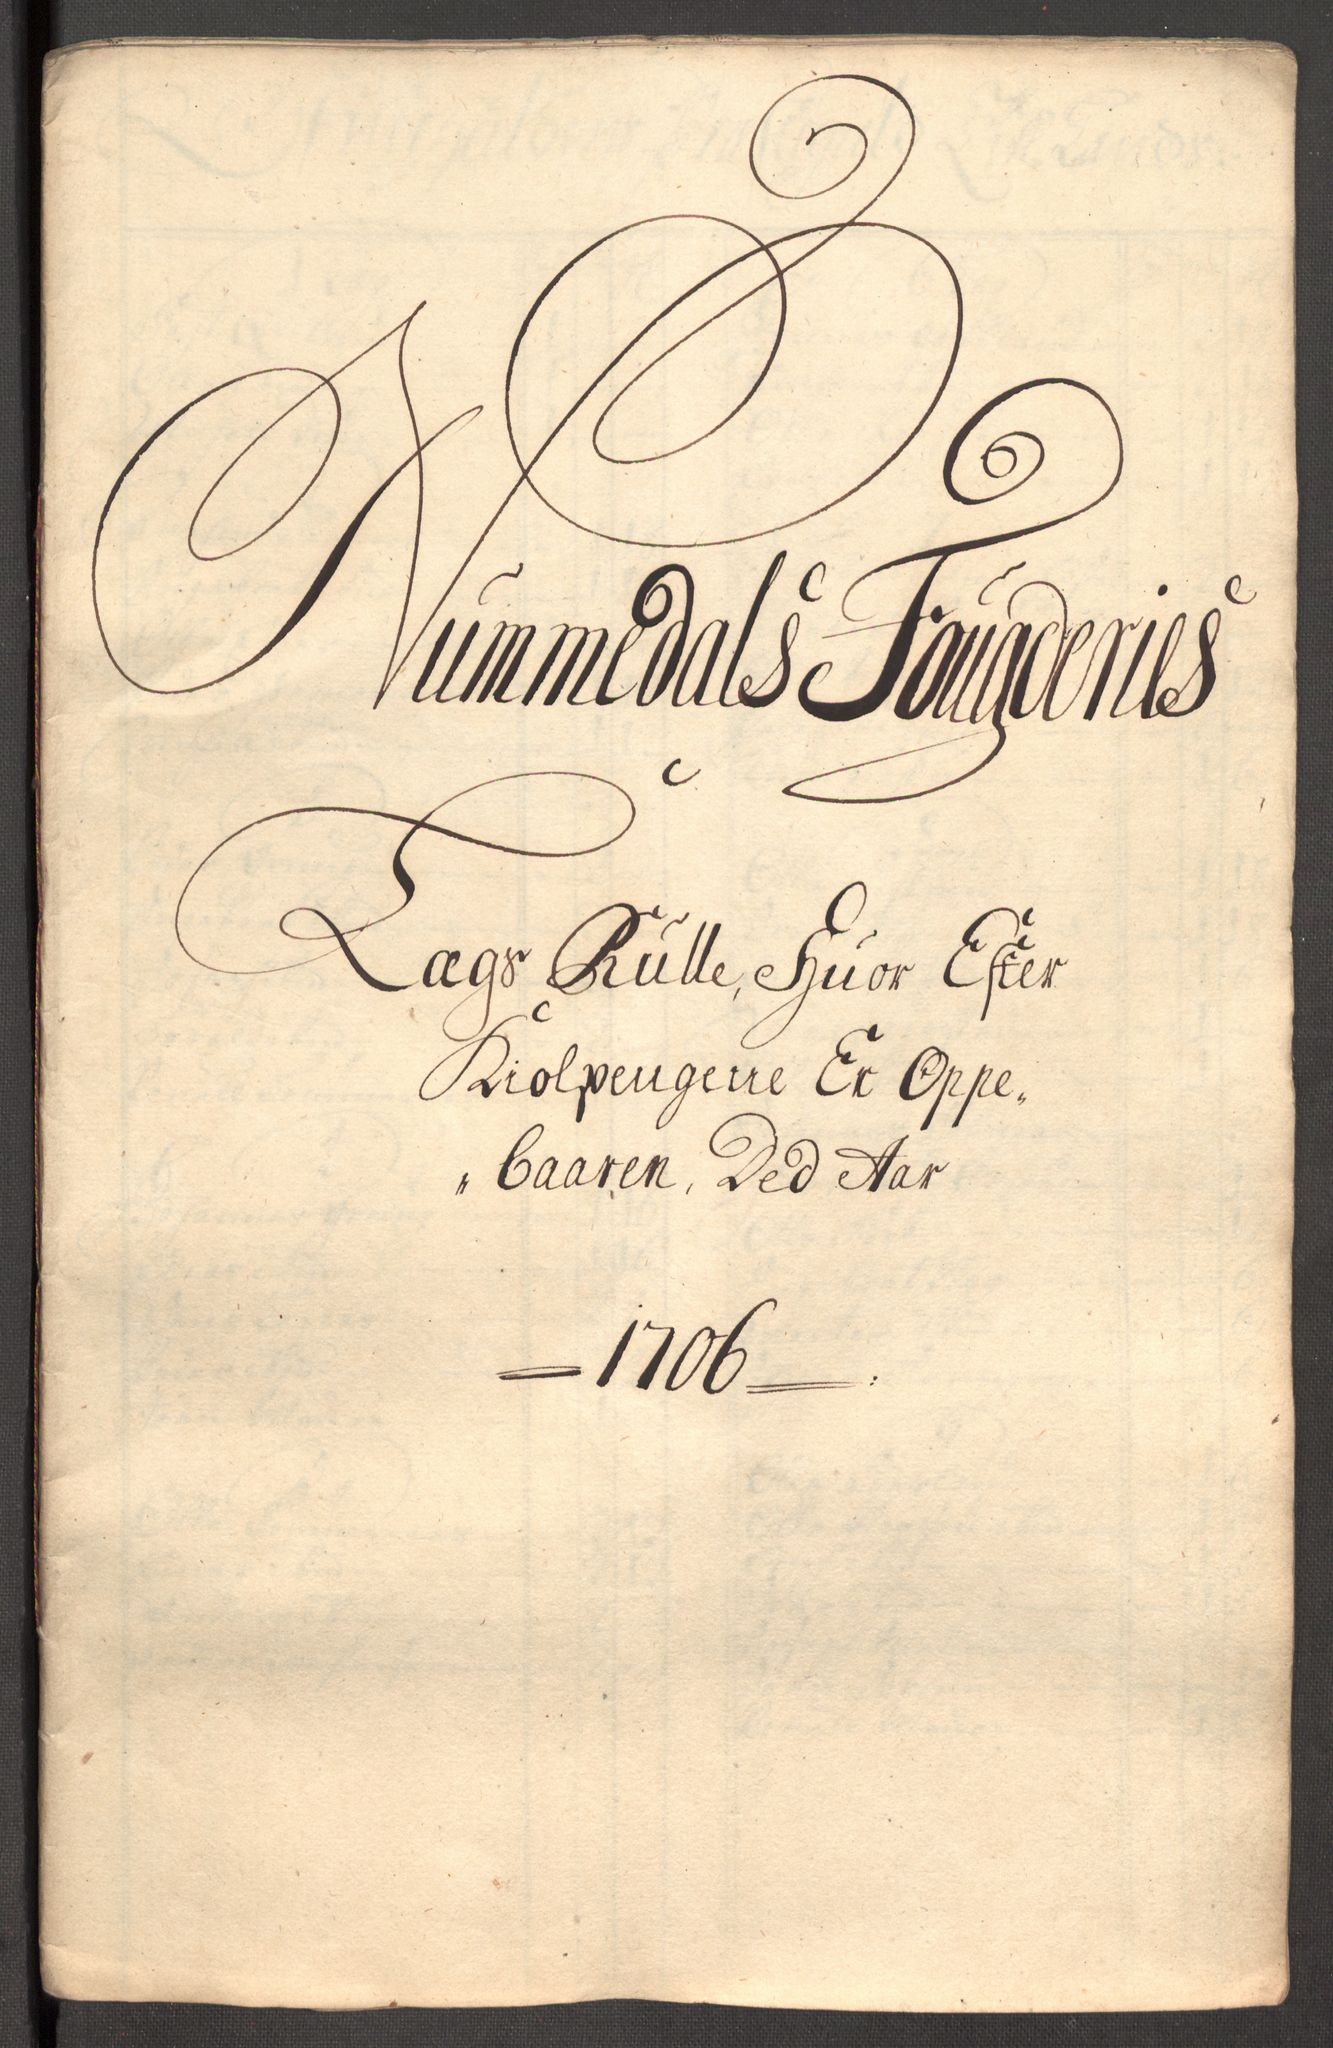 Nummedals Fougderies
Lægs Rulle, Huor Efter
Kiolpengene Er Oppe„
„baaren, Ded Aar
1706